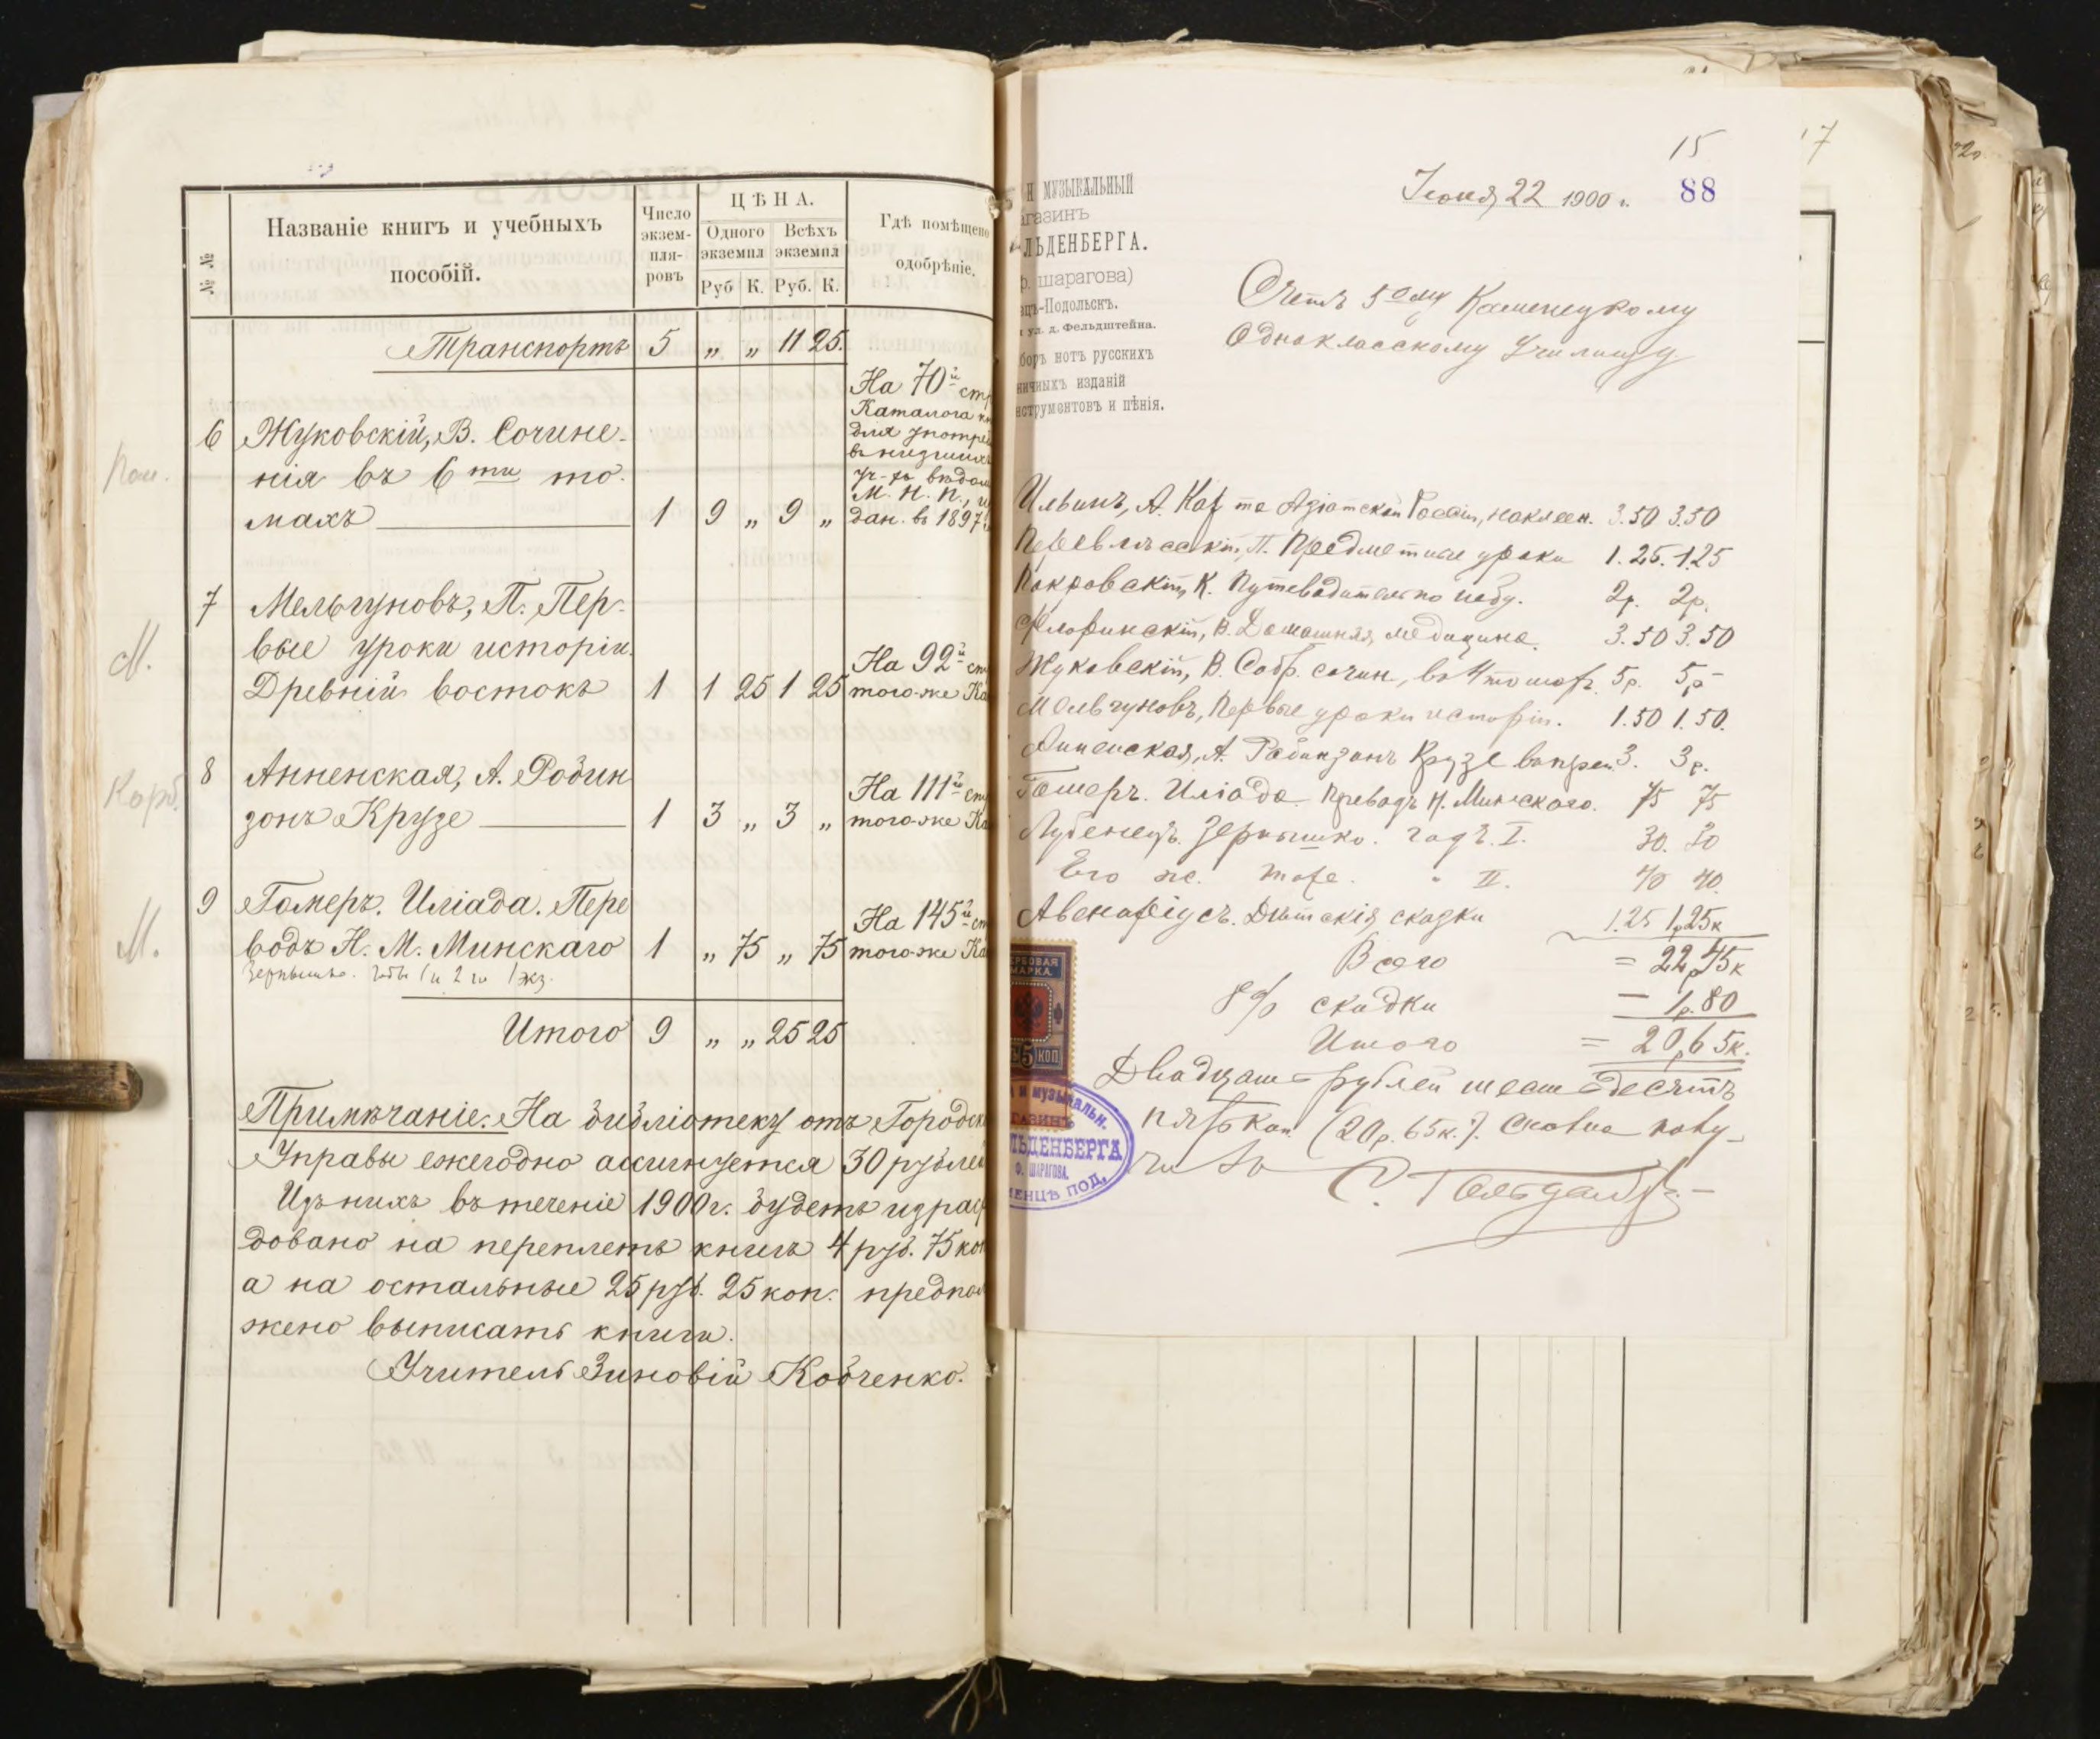 № №
Названіе книгъ и учебныхъ
пособій.
Число
экзем-
пля-
ровъ
ЦѢНА.
Одного
экземпл
Всѣхъ
экземпл
Руб К. Руб. К.
Гдѣ помѣщено
одобрѣніе.
Транспортъ 5 „ „ 11 25.
На 70й стр
Каталога кн
для употреб
въ низшихъ
уч-хъ вѣдом
М. Н. П., из
дан. въ 1897 г
6 Жуковскій, В. Сочине-
нія въ 6ти то-
махъ 1 9 „ 9 „
7 Мельгуновъ, П. Пер-
вые уроки исторіи.
Древній востокъ 1 1 25 1 25
На 92й ст
того-же Ка
8 Анненская, А. Робин
зонъ Крузе 1 3 „ 3 „
На 111й ст
того-же Ка
9 Гомеръ. Иліада. Пере
водъ Н. М. Минскаго 1 „ 75 „ 75
На 145й ст
того-же Ка
Зернышко. годы 1 и 2 1 экз.
Итого 9 „ „ 25 25
Примѣчаніе. На библіотеку отъ Городск
Управы ежегодно ассигнуется 30 рублей
Изъ нихъ въ теченіе 1900 г. будетъ израсх
довано на переплетъ книгъ 4 руб. 75 коп
а на остальные 25 руб. 25 коп. предпол
жено выписать книги.
Учитель Зиновій Кобченко.
М.
Корб.
М.
15
17
88
Іюня 22 1900 г.
И МУЗЫКАЛЬНЫЙ
агазинъ
ЛЬДЕНБЕРГА.
ф. шарагова)
ецъ-Подольскъ.
ул. д. Фельдштейна.
боръ нотъ русскихъ
ничныхъ изданій
нструментовъ и пѣнія.
Счетъ 5ому Каменецкому
Однокласскому Училищу
Ильинъ, А. Карта Азіатской Россіи, наклеен. 3.50 3.50
Перевлѣсскій, П. Предметные уроки 1.25. 1.25
Покровскій, К. Путеводитель по небу. 2р. 2р.
Флоринскій, В. Домашняя медицина. 3.50 3.50
Жуковскій, В. Собр. сочин., въ 4 томахъ. 5р. 5р
Мельгуновъ, Первые уроки исторіи. 1.50 1.50.
Анненская, А. Робинзонъ Крузе 3. 3р.
Гомеръ. Иліада. Преводъ Н. Минскаго. 75 75
Лубенецъ. Зернышко. годъ. I. 30. 30
Его же. тоже. " II. 40 40.
Авенаріусъ. Дѣтскія сказки 1.25 1р25к
Всего = 22р45к
8% скидки — 1р.80
Итого = 20р65к.
Двадцать рублей шестьдесятъ
пять коп. (20р. 65к.). сполна полу-
чилъ
С. Гольденберг
ЕРБОВАЯ
МАРКА.
5 КОП
И МУЗЫКАЛЬН.
ГАЗИНЪ
ЛЬДЕНБЕРГА
Ф. ШАРАГОВА.
МЕНЦѢ ПОД.